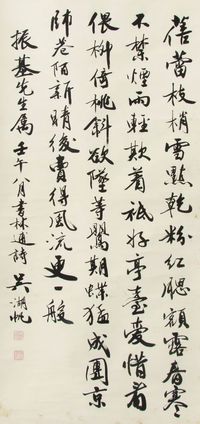 蓓蕾枝梢雪點乾粉紅腮額露春寒
不禁煙雨輕欺着祗好亭臺愛惜看
偎柳倚桃斜欲墜等鶯期蝶猛成團京
師巷陌新晴後賣得風流更一般
振基先生屬 壬午八月書林逋詩 吳湖帆